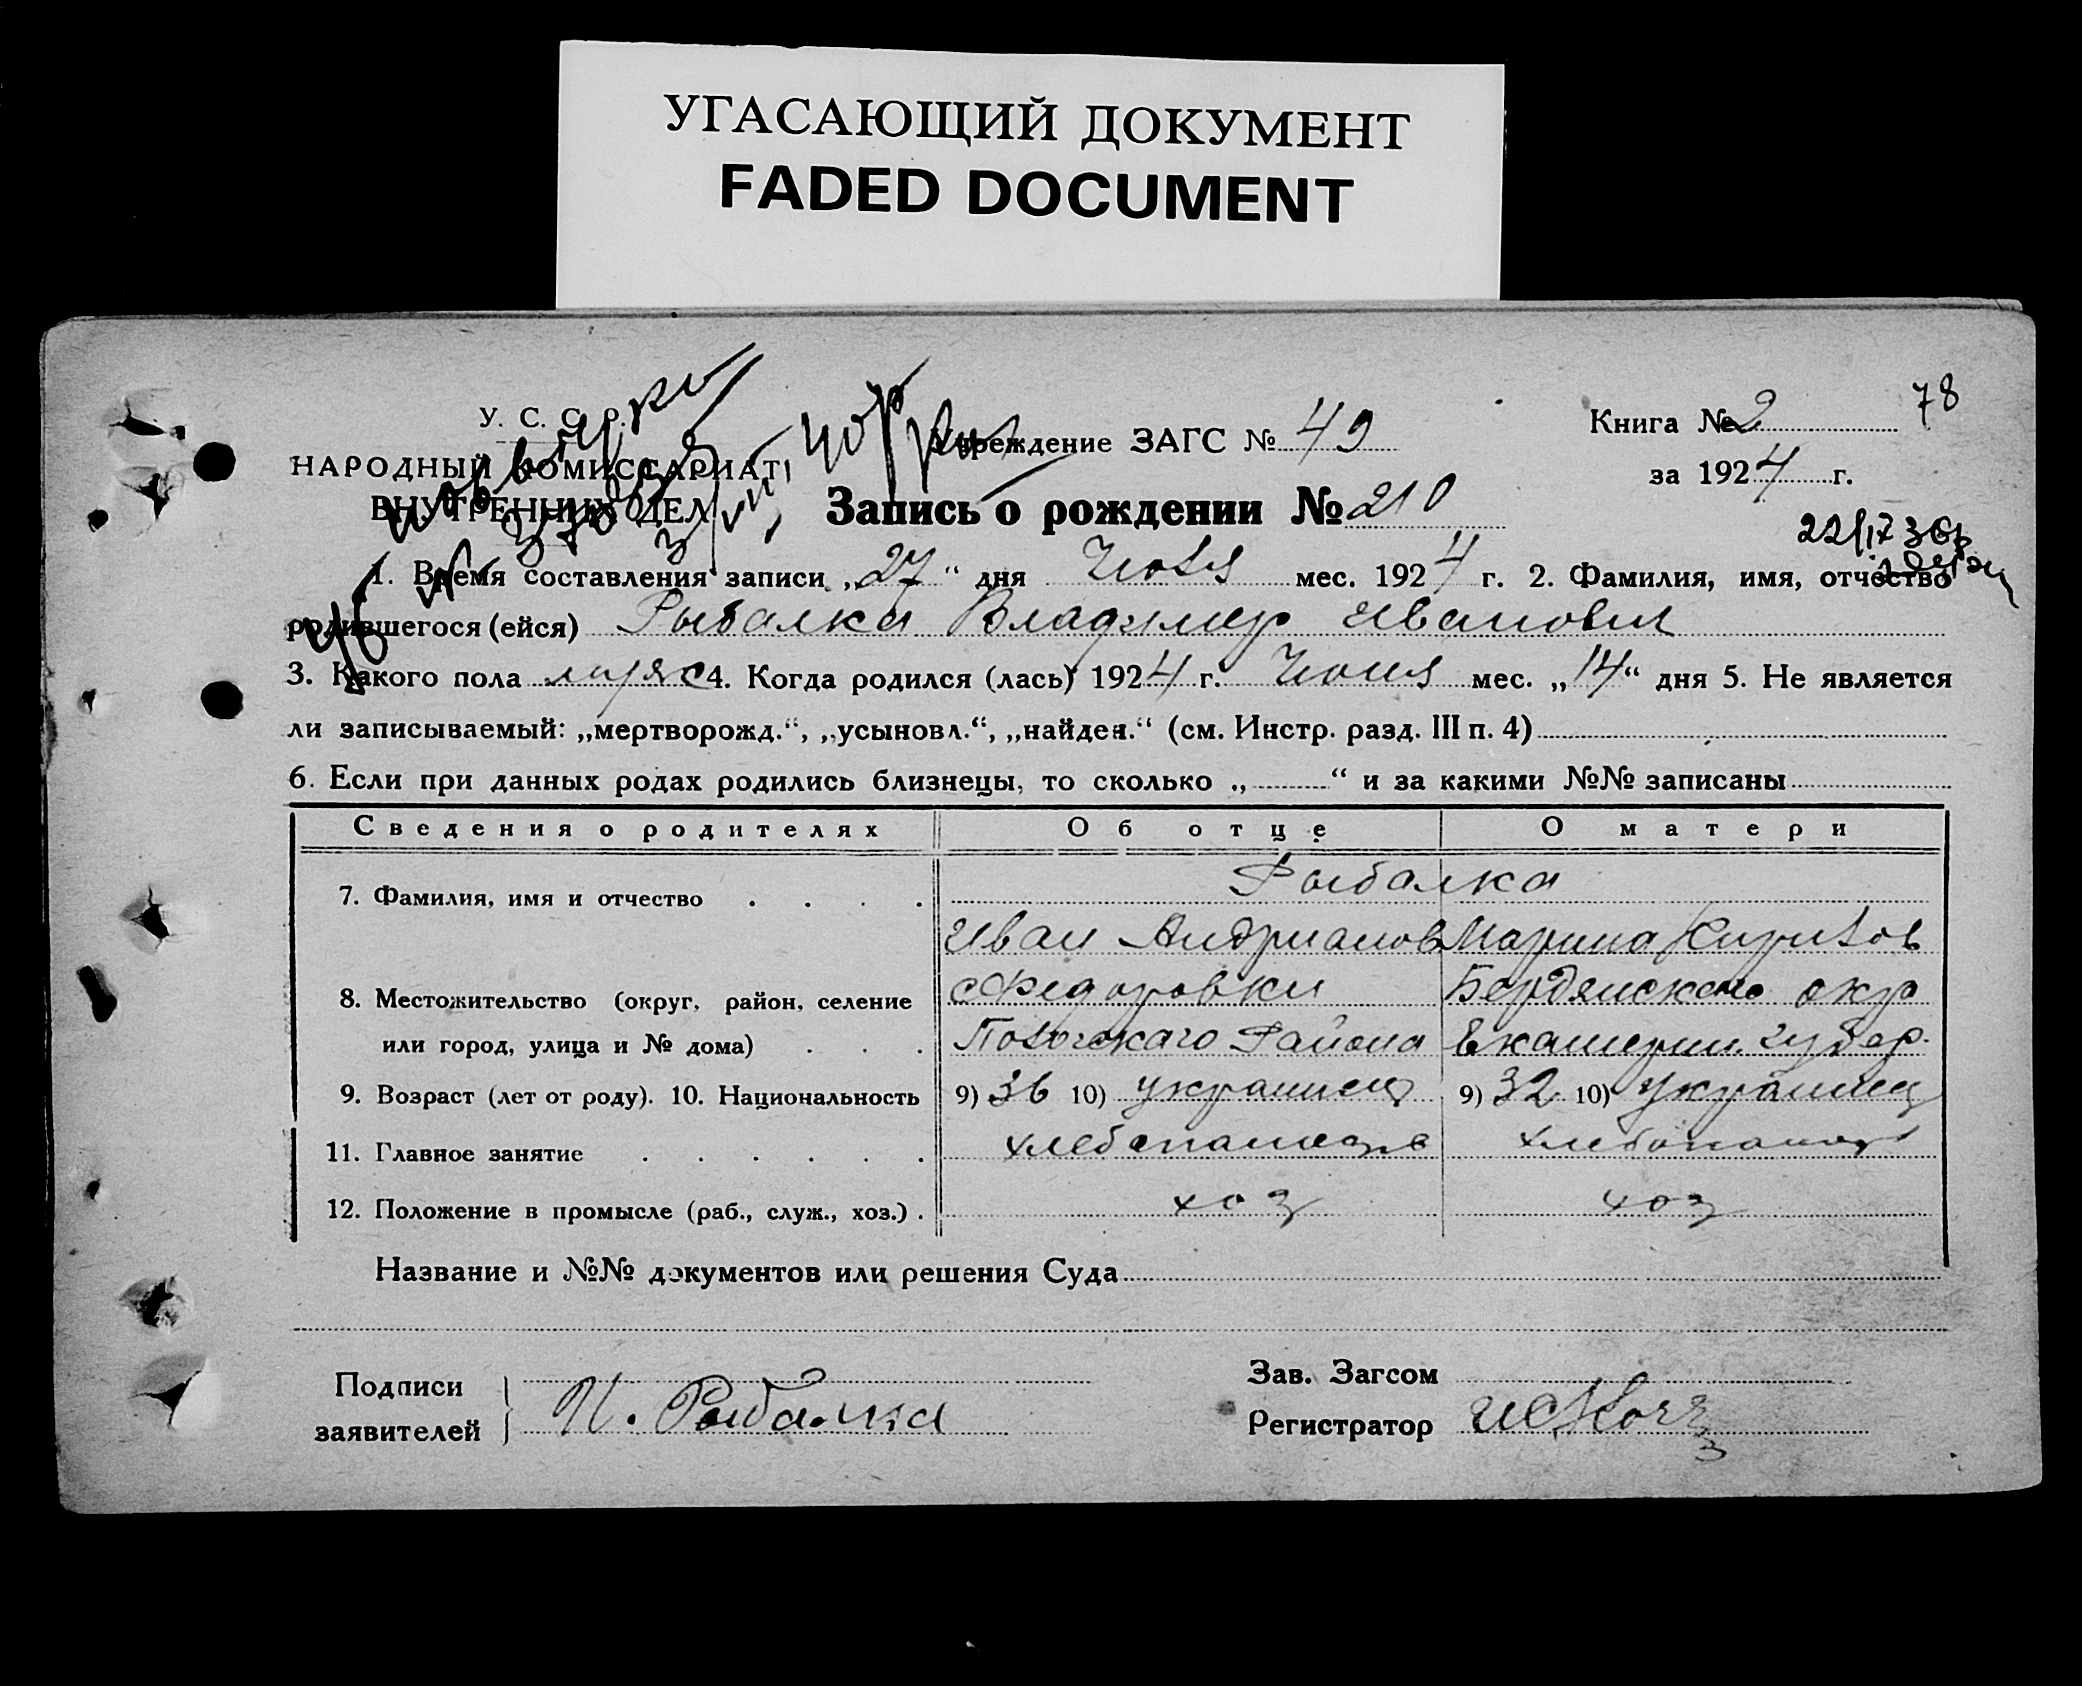 УГАСАЮЩИЙ ДОКУМЕНТ
FADED DOCUMENT
У. С. С. Р.
НАРОДНЫЙ КОМИССАРИАТ
ВНУТРЕННИХ ДЕЛ
Учреждение ЗАГС № 49
Книга № 2
78
за 1924 г.
Запись о рождении № 210
1. Время составления записи „27“ дня Июля мес. 1924 г. 2. Фамилия, имя, отчество
родившегося (ейся) Рыбалка Владимир Иванович
3. Какого пола мужс 4. Когда родился (лась) 1924 г. Июня мес. „14“ дня 5. Не является
ли записываемый: „мертворожд.“, „усыновл.“, „найден.“ (см. Инстр. разд. III п. 4)
6. Если при данных родах родились близнецы, то сколько „ “ и за какими №№ записаны
Сведения о родителях Об отце О матери
7. Фамилия, имя и отчество . . . . Рыбалка
Иван Андрианов Марина Кирилов
8. Местожительство (округ, район, селение с Федоровки Бердянского окр
или город, улица и № дома) . . . Пологскаго Района Екатерин. губер.
9. Возраст (лет от роду). 10. Национальность 9) 36 10) украинец 9) 32 10) украинец
11. Главное занятие . . . . . . хлебопашец хлебопашец
12. Положение в промысле (раб., служ., хоз.) . хоз хоз
Название и №№ документов или решения Суда
Подписи
заявителей
И. Рыбалка
Зав. Загсом
Регистратор